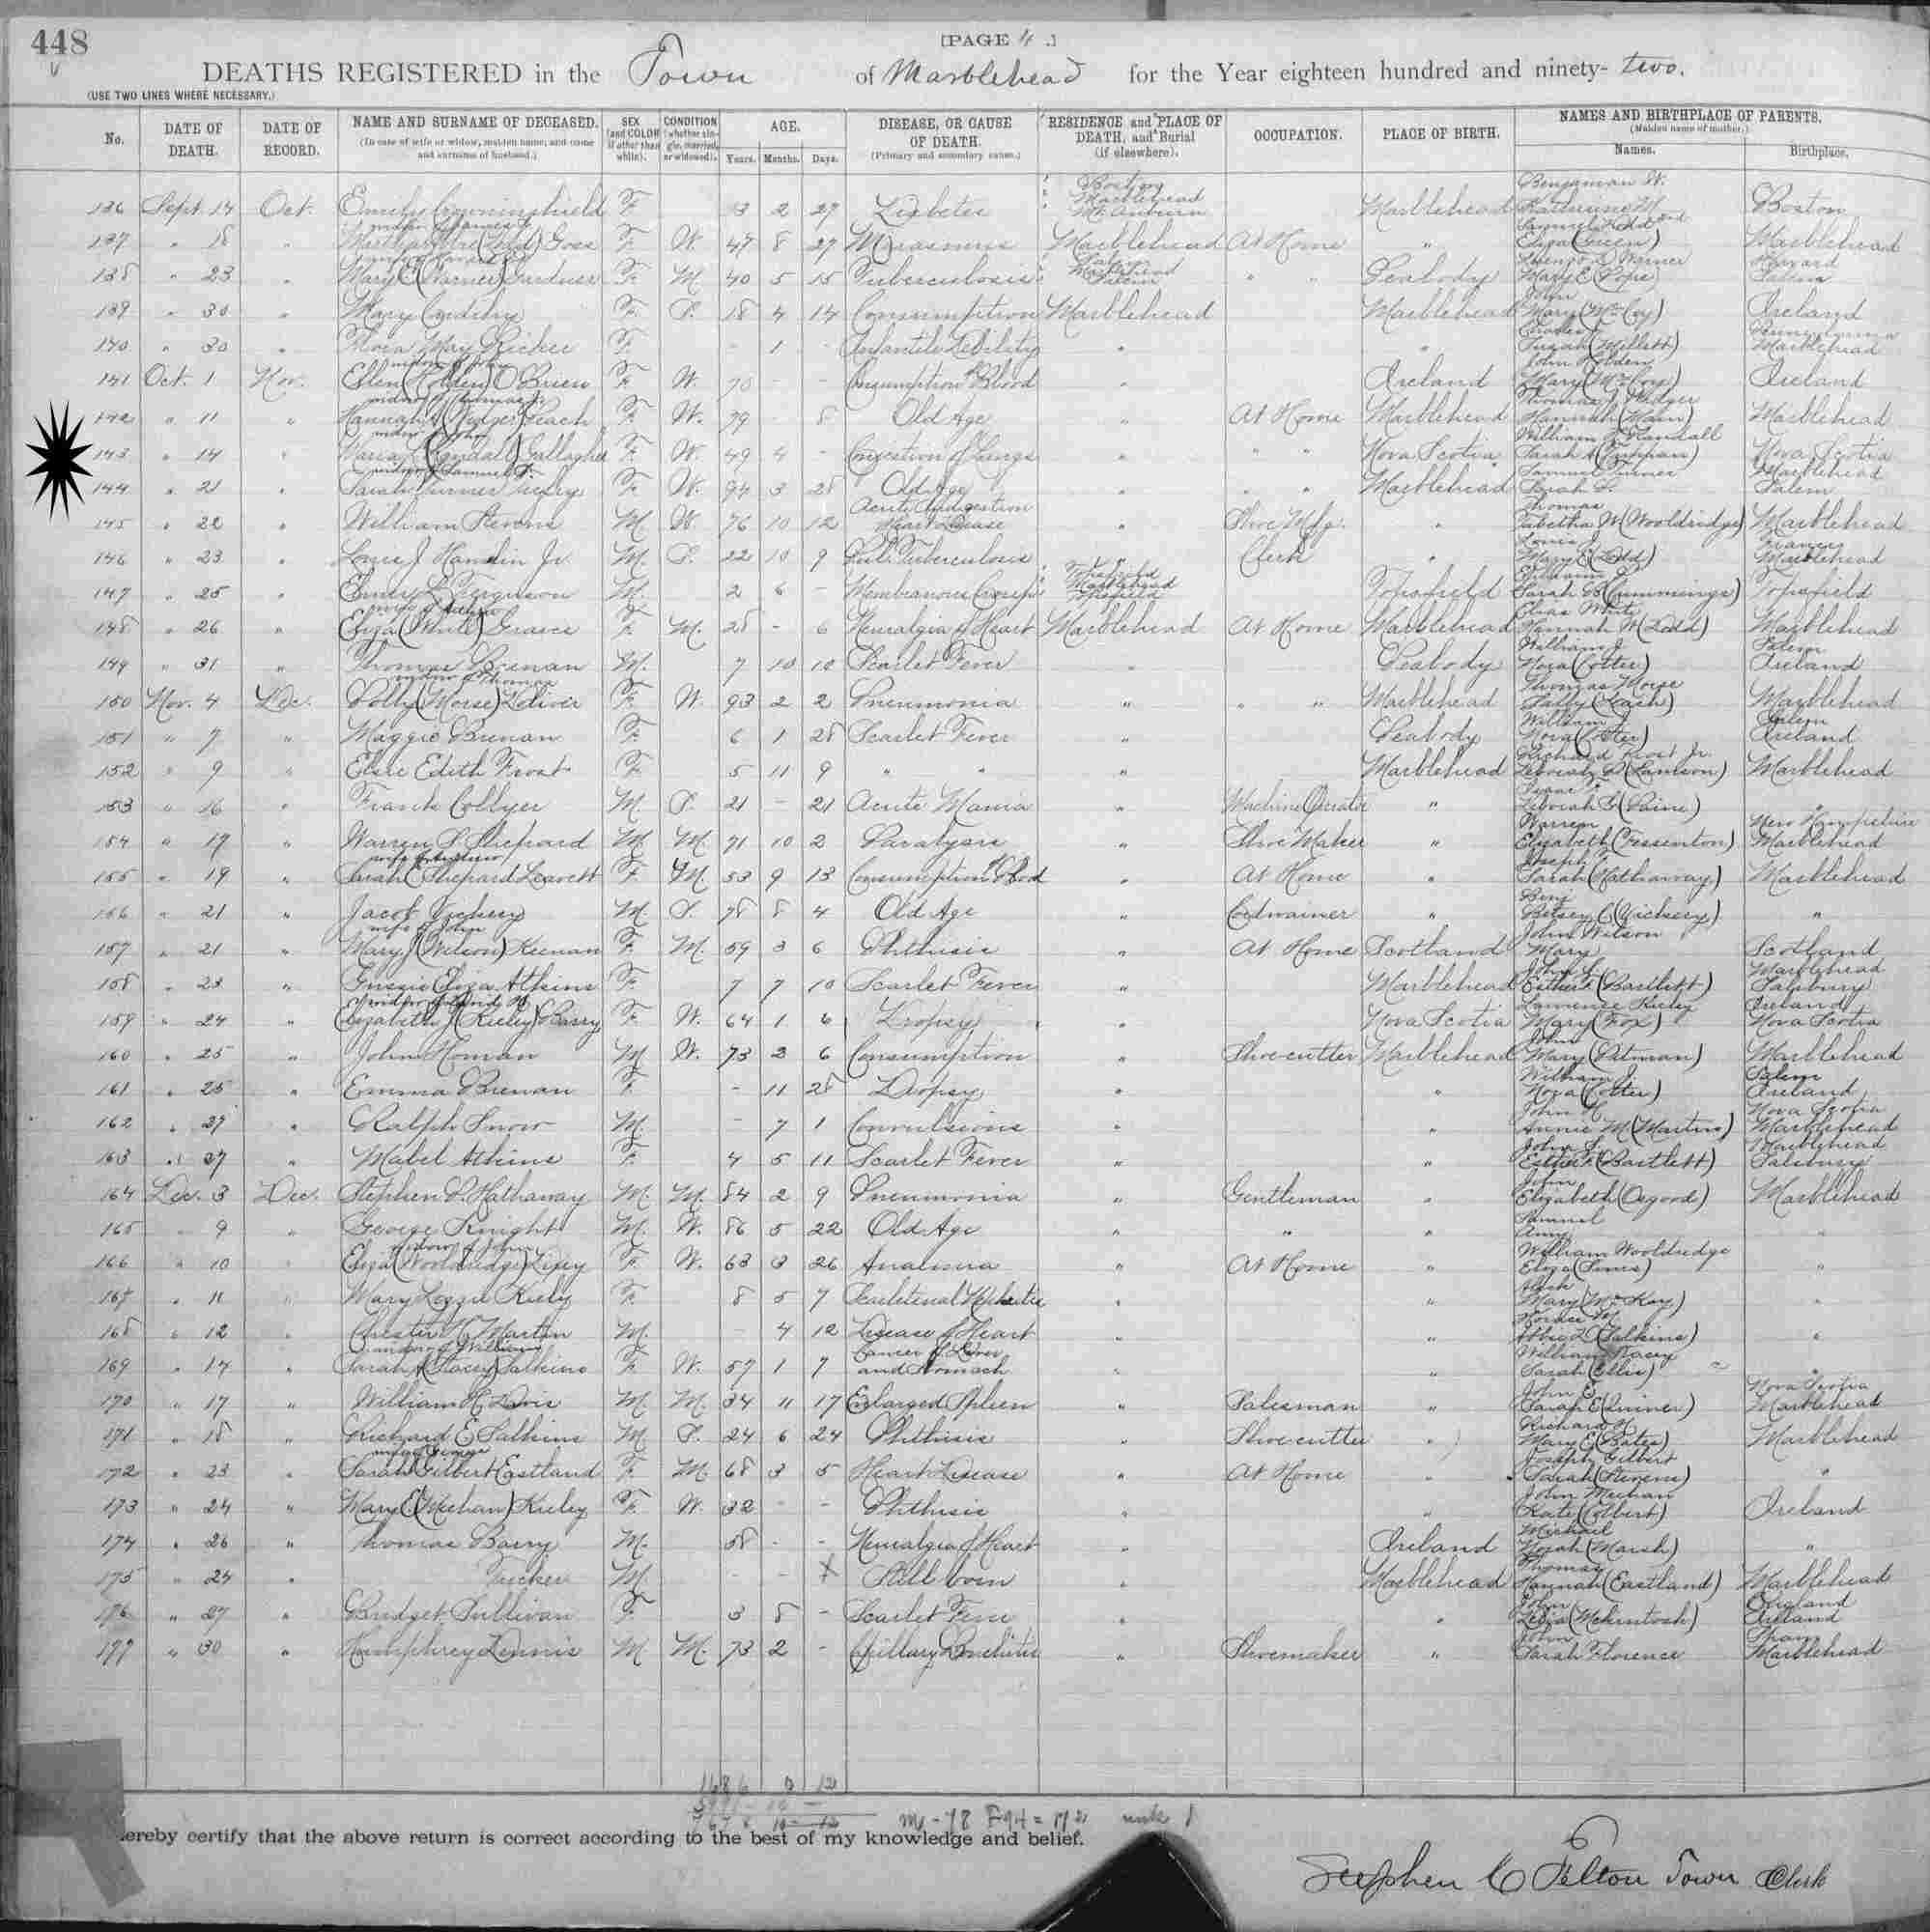 448
[PAGE 4.]
DEATHS REGISTERED in the Town of Marblehead for the Year eighteen hundred and ninety-two.
(USE TWO LINES WHERE NECESSARY.)
No. DATE OF DEATH. DATE OF RECORD. NAME AND SURNAME OF DECEASED. (In case of wife or widow, maiden name, and name and surname of husband.) SEX (and COLOR if other than white). CONDITION (whether single, married, or widowed). AGE. Years. Months. Days. DISEASE, OR CAUSE OF DEATH. (Primary and secondary cause.) RESIDENCE and PLACE OF DEATH, and Burial (if elsewhere). OCCUPATION. PLACE OF BIRTH. NAMES AND BIRTHPLACE OF PARENTS. (Maiden name of mother.) Names. Birthplace.
136 Sept. 14 Oct. Emily Crowninshield F. 3 2 27 Diabetes Boston Marblehead Mt. Auburn Marblehead Benjaman W. Katherine M. Boston
137 " 18 " Goss F. W. 47 8 27 Marasmus Marblehead At Home " Samuel Eliza (Green) Marblehead
138 " 23 " Mary E (Warner) Gardner F. M. 40 5 15 Tuberculosis Salem Marblehead Salem " " Peabody Warner Mary E (Pope) Harvard Salem
139 " 30 " Mary F. S. 18 4 14 Consumption Marblehead Marblehead John Mary (McCoy) Ireland
140 " 30 " May Ricker F. - 1 - Infantile Debility " " (Millett) Pennsylvania Marblehead
141 Oct. 1 Nov. widow of John Ellen (Holden) O'Brien F. W. 70 - - Consumption of Blood " Ireland John Holden Mary (McCoy) Ireland
142 " 11 " widow of Thomas Jr. Hannah (Widger) Peach F. W. 79 - 8 Old Age " At Home Marblehead Thomas J. Widger Hannah (Main) Marblehead
143 " 14 " widow of John Maria (Randall) Gallagher F. W. 49 4 - Congestion of Lungs " " " Nova Scotia William Randall Sarah A Nova Scotia
144 " 21 " widow of Samuel Sarah Turner F. W. 94 3 28 Old Age " " " Marblehead Samuel Turner Sarah Marblehead Salem
145 " 22 " William Stevens M. W. 76 10 12 Acute Indigestion Heart Disease " Shoe Mfg. " Thomas Tabetha W (Wooldridge) Marblehead
146 " 23 " Louis J. Hamlin Jr. M. S. 22 10 9 Pul. Tuberculosis " Clerk " Louis J. Mary E (Dodd) Marblehead
147 " 25 " L. Ferguson M. 2 6 - Membranous Croup Topsfield Marblehead Topsfield Topsfield William Sarah (Cummings) Topsfield
148 " 26 " wife of Eliza (White) Graves F. M. 28 - 6 Neuralgia of Heart Marblehead At Home Marblehead White Hannah W (Dodd) Marblehead
149 " 31 " Thomas Brenan M. 7 10 10 Scarlet Fever " Peabody William J. Nora (Cotter) Salem Ireland
150 Nov. 4 Dec. widow of Thomas Polly (Morse) Doliver F. W. 93 2 2 Pneumonia " " " Marblehead Thomas Morse Sally (Peach) Marblehead
151 " 7 " Maggie Brenan F. 6 1 28 Scarlet Fever " Peabody William J. Nora (Cotter) Salem Ireland
152 " 9 " Elsie Edith Frost F. 5 11 9 " " " Marblehead Richard Frost Jr. (Lamson) Marblehead
153 " 16 " Frank Collyer M. S. 21 - 21 Acute Mania " Machine Operator " Isaac Deborah S (Paine) "
154 " 17 " Warren P. Shepard M. M. 71 10 2 Paralysis " Shoe Maker " Warren Elizabeth (Fessenton) New Hampshire Marblehead
155 " 19 " wife of Andrew Sarah E Shepard Leavett F. M. 53 9 13 Consumption of Blood " At Home " Joseph Sarah (Hathaway) Marblehead
156 " 21 " Jacob Vickery M. S. 78 8 4 Old Age " Cordwainer " Benj Betsey C (Vickery) "
157 " 21 " wife of John Mary J (Wilson) Keenan F. M. 59 3 6 Phthisis " At Home Scotland John Wilson Mary Scotland
158 " 23 " Gussie Eliza Atkins F. 7 7 10 Scarlet Fever " Marblehead John S. Esther (Bartlett) Marblehead Salsbury
159 " 24 " Elizabeth J (Kieley) Barry F. W. 64 1 6 Dropsy " Nova Scotia Lawrence Kieley Mary (Fox) Ireland Nova Scotia
160 " 25 " John Homan M. W. 73 2 6 Consumption " Shoe cutter Marblehead John Mary (Pitman) Marblehead
161 " 25 " Emma Brenan F. - 11 28 Dropsy " " William J. Nora (Cotter) Salem Ireland
162 " 27 " Ralph Snow M. - 7 1 Convulsions " " John Annie M (Martin) Nova Scotia Marblehead
163 " 27 " Mabel Atkins F. 4 5 11 Scarlet Fever " " John S. Esther (Bartlett) Marblehead Salsbury
164 Dec. 3 Dec. Stephen P. Hathaway M. M. 84 2 9 Pneumonia " Gentleman " John Elizabeth (Osgood) Marblehead
165 " 9 " George Knight M. W. 86 5 22 Old Age " " " Samuel Amy "
166 " 10 " widow of John Eliza (Wooldridge) F. W. 63 3 26 " At Home " William Wooldredge Eliza (Sims) "
167 " 11 " Mary Lizzie Kiely F. 8 5 7 Scarletenal Nephritis " " Mary (McKay) "
168 " 12 " Chester Martin M. - 4 12 Disease of Heart " " Abbie L (Salkins) "
169 " 14 " widow of William Sarah A (Stacey) Salkins F. W. 57 1 7 Cancer of Liver and Stomach " " William Stacey Sarah (Ellis) "
170 " 17 " William H. Davis M. M. 34 11 17 Enlarged Spleen " Salesman " John E. Sarah E (Quiner) Nova Scotia Marblehead
171 " 18 " Richard E Salkins M. S. 24 6 24 Phthisis " Shoe cutter " Richard Mary E (Bates) Marblehead
172 " 23 " wife of George Sarah Gilbert Eastland F. M. 68 3 5 Heart Disease " At Home " Joseph Gilbert Sarah (Stevens) "
173 " 24 " Mary E. (Meehan) Kieley F. W. 32 - - Phthisis " " John Meehan Kate (Colbert) Ireland
174 " 26 " Thomas Barry M. 58 - - Neuralgia of Heart " Ireland Michael Norah (Marsh) "
175 " 24 " Tucker M. - - Still born " Marblehead Thomas Hannah (Eastland) Marblehead
176 " 27 " Bridget Sullivan F. 3 8 - Scarlet Fever " " John (McKintosh) England Ireland
177 " 30 " Humphrey Dennis M. M. 73 2 - Capillary Bronchitis " Shoemaker " John Sarah Florence Marblehead
m - 78 F 94 = 172
ereby certify that the above return is correct according to the best of my knowledge and belief.
Stephen C Felton Town Clerk